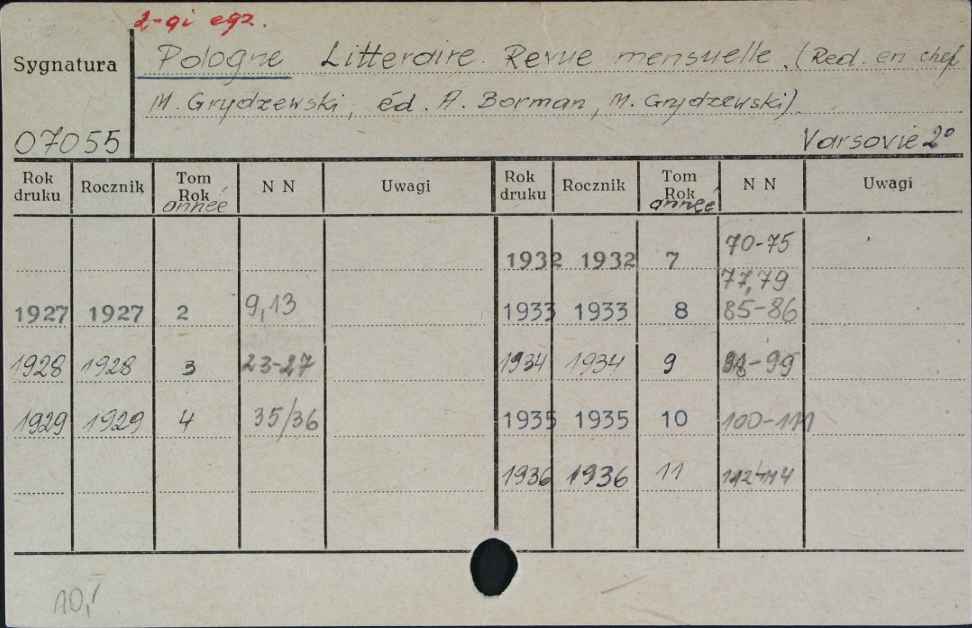 2-gi egz.
Sygnatura
Pologne Litteraire. Revue mensuelle. (Red. en chef
M. Grydzewski, éd. A. Borman, M. Grydzewski)
07055
Varsovie 2°
Rok druku Rocznik Tom Rok année N N Uwagi Rok druku Rocznik Tom Rok année N N Uwagi
1932 1932 7 70-75
77,79
1927 1927 2 9,13 1933 1933 8 85-86
1928 1928 3 23-27 1934 1934 9 -99
1929 1929 4 35/36 1935 1935 10 100-111
1936 1936 11